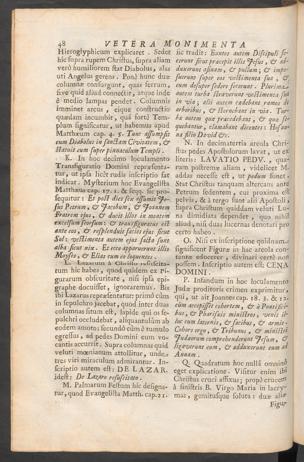 48 VETERA MONIMENTA
Hieroglyphicum explicaret. Sedet
hîc supra rupem Christus, supra aliam
verò humiliorem stat Diabolus, alas
uti Angelus gerens. Ponè hunc duæ
columnæ consurgunt, quas ferrum,
sive quid aliud connectit, atque inde
è medio lampas pendet. Columnis
imminet arcus, eique constructio
quædam incumbit, quâ fortè Tem-
plum significatur, ut habemus apud
Matthæum cap. 4. 5. Tunc assumpsit
eum Diabolus in sanctam Civitatem, &
statuit eum super pinnaculum Templi.
K. In hoc decimo loculamento
Transfiguratio Domini repræsenta-
tur, ut ipsa licet rudis inscriptio sat
indicat. Mysterium hoc Evangelista
Matthæus cap. 17. 1. & seqq. sic pro-
sequitur: Et post dies sex assumit Je-
sus Petrum, & Jacobum, & Joannem
Fratrem ejus, & ducit illos in montem
excelsum seorsum: & transfiguratus est
ante eos, & resplenduit facies ejus sicut
Sol: vestimenta autem ejus facta sunt
alba sicut nix. Et ecce apparuerunt illis
Moyses, & Elias cum eo loquentes.
L. Lazarum à Christo resuscita-
tum hic habes, quod quidem ex fi-
gurarum obscuritate, nisi ipsa epi-
graphe docuisset, ignoraremus. Bis
ibi Lazarus repræsentatur: primò cùm
in sepulchro jacebat, quod inter duas
columnas situm est, lapide qui os se-
pulchri occludebat, aliquantulum ab
eodem amoto; secundò cùm è tumulo
egressus, ad pedes Domini eum vo-
cantis accurrit. Supra columnas quid
veluti mœnianum attollitur, unde
tres viri miraculum admirantur. In-
scriptio autem est: DE LAZAR.
idest: De Lazaro resuscitato.
M. Palmarum Festum hic designa-
tur, quod Evangelista Matth. cap. 21.
sic tradit: Euntes autem Discipuli fe-
cerunt sicut præcepit illis Jesus, & ad-
duxerunt asinam, & pullum; & impo-
suerunt super eos vestimenta sua, &
eum desuper sedere fecerunt. Plurima
autem turba straverunt vestimenta sua
in via; alii autem cædebant ramos de
arboribus, & sternebant in via. Tur-
bæ autem quæ præcedebant, & quæ se-
quebantur, clamabant dicentes: Hosan-
na filio David &c.
N. In decimatertia areola Chri-
stus pedes Apostolorum lavat, ut ex
literis: LAVATIO PEDV. quá-
rum postremæ aliam, videlicet M.
addas necesse est, ut pedum sonet.
Stat Christus tanquam altercans ante
Petrum sedentem, cui proxima est
pelvis, & à tergo stant alii Apostoli;
supra Christum quiddam veluti Lu-
na dimidiata dependet, quo nihil
aliud, nisi duas lucernas denotari pro
certo habeo.
O. Ni ex inscriptione quidnam
significent Figuræ in hac areola con-
tentæ edocerer, divinari certè non
possem. Inscriptio autem est: CENA
DOMINI.
P. Infandum in hoc loculamento
Judæ proditoris crimen exprimitur,
qui, ut ait Joannes cap. 18. 3. & 12.
cùm accepisset cohortem, & à Pontifici-
bus, & Pharisæis ministros, venit il-
luc cum laternis, & facibus, & armis.
Cohors ergo, & Tribunus, & ministri
Judæorum comprehenderunt Jesum, &
ligaverunt eum, & adduxerunt eum ad
Annam.
Q. Quadratum hoc nullâ omninò
eget explicatione. Visitur enim ibi
Christus cruci affixus; propè crucem
à sinistris B. Virgo Maria in lacry-
mas, gemitusque soluta: duæ aliæ
Figur-